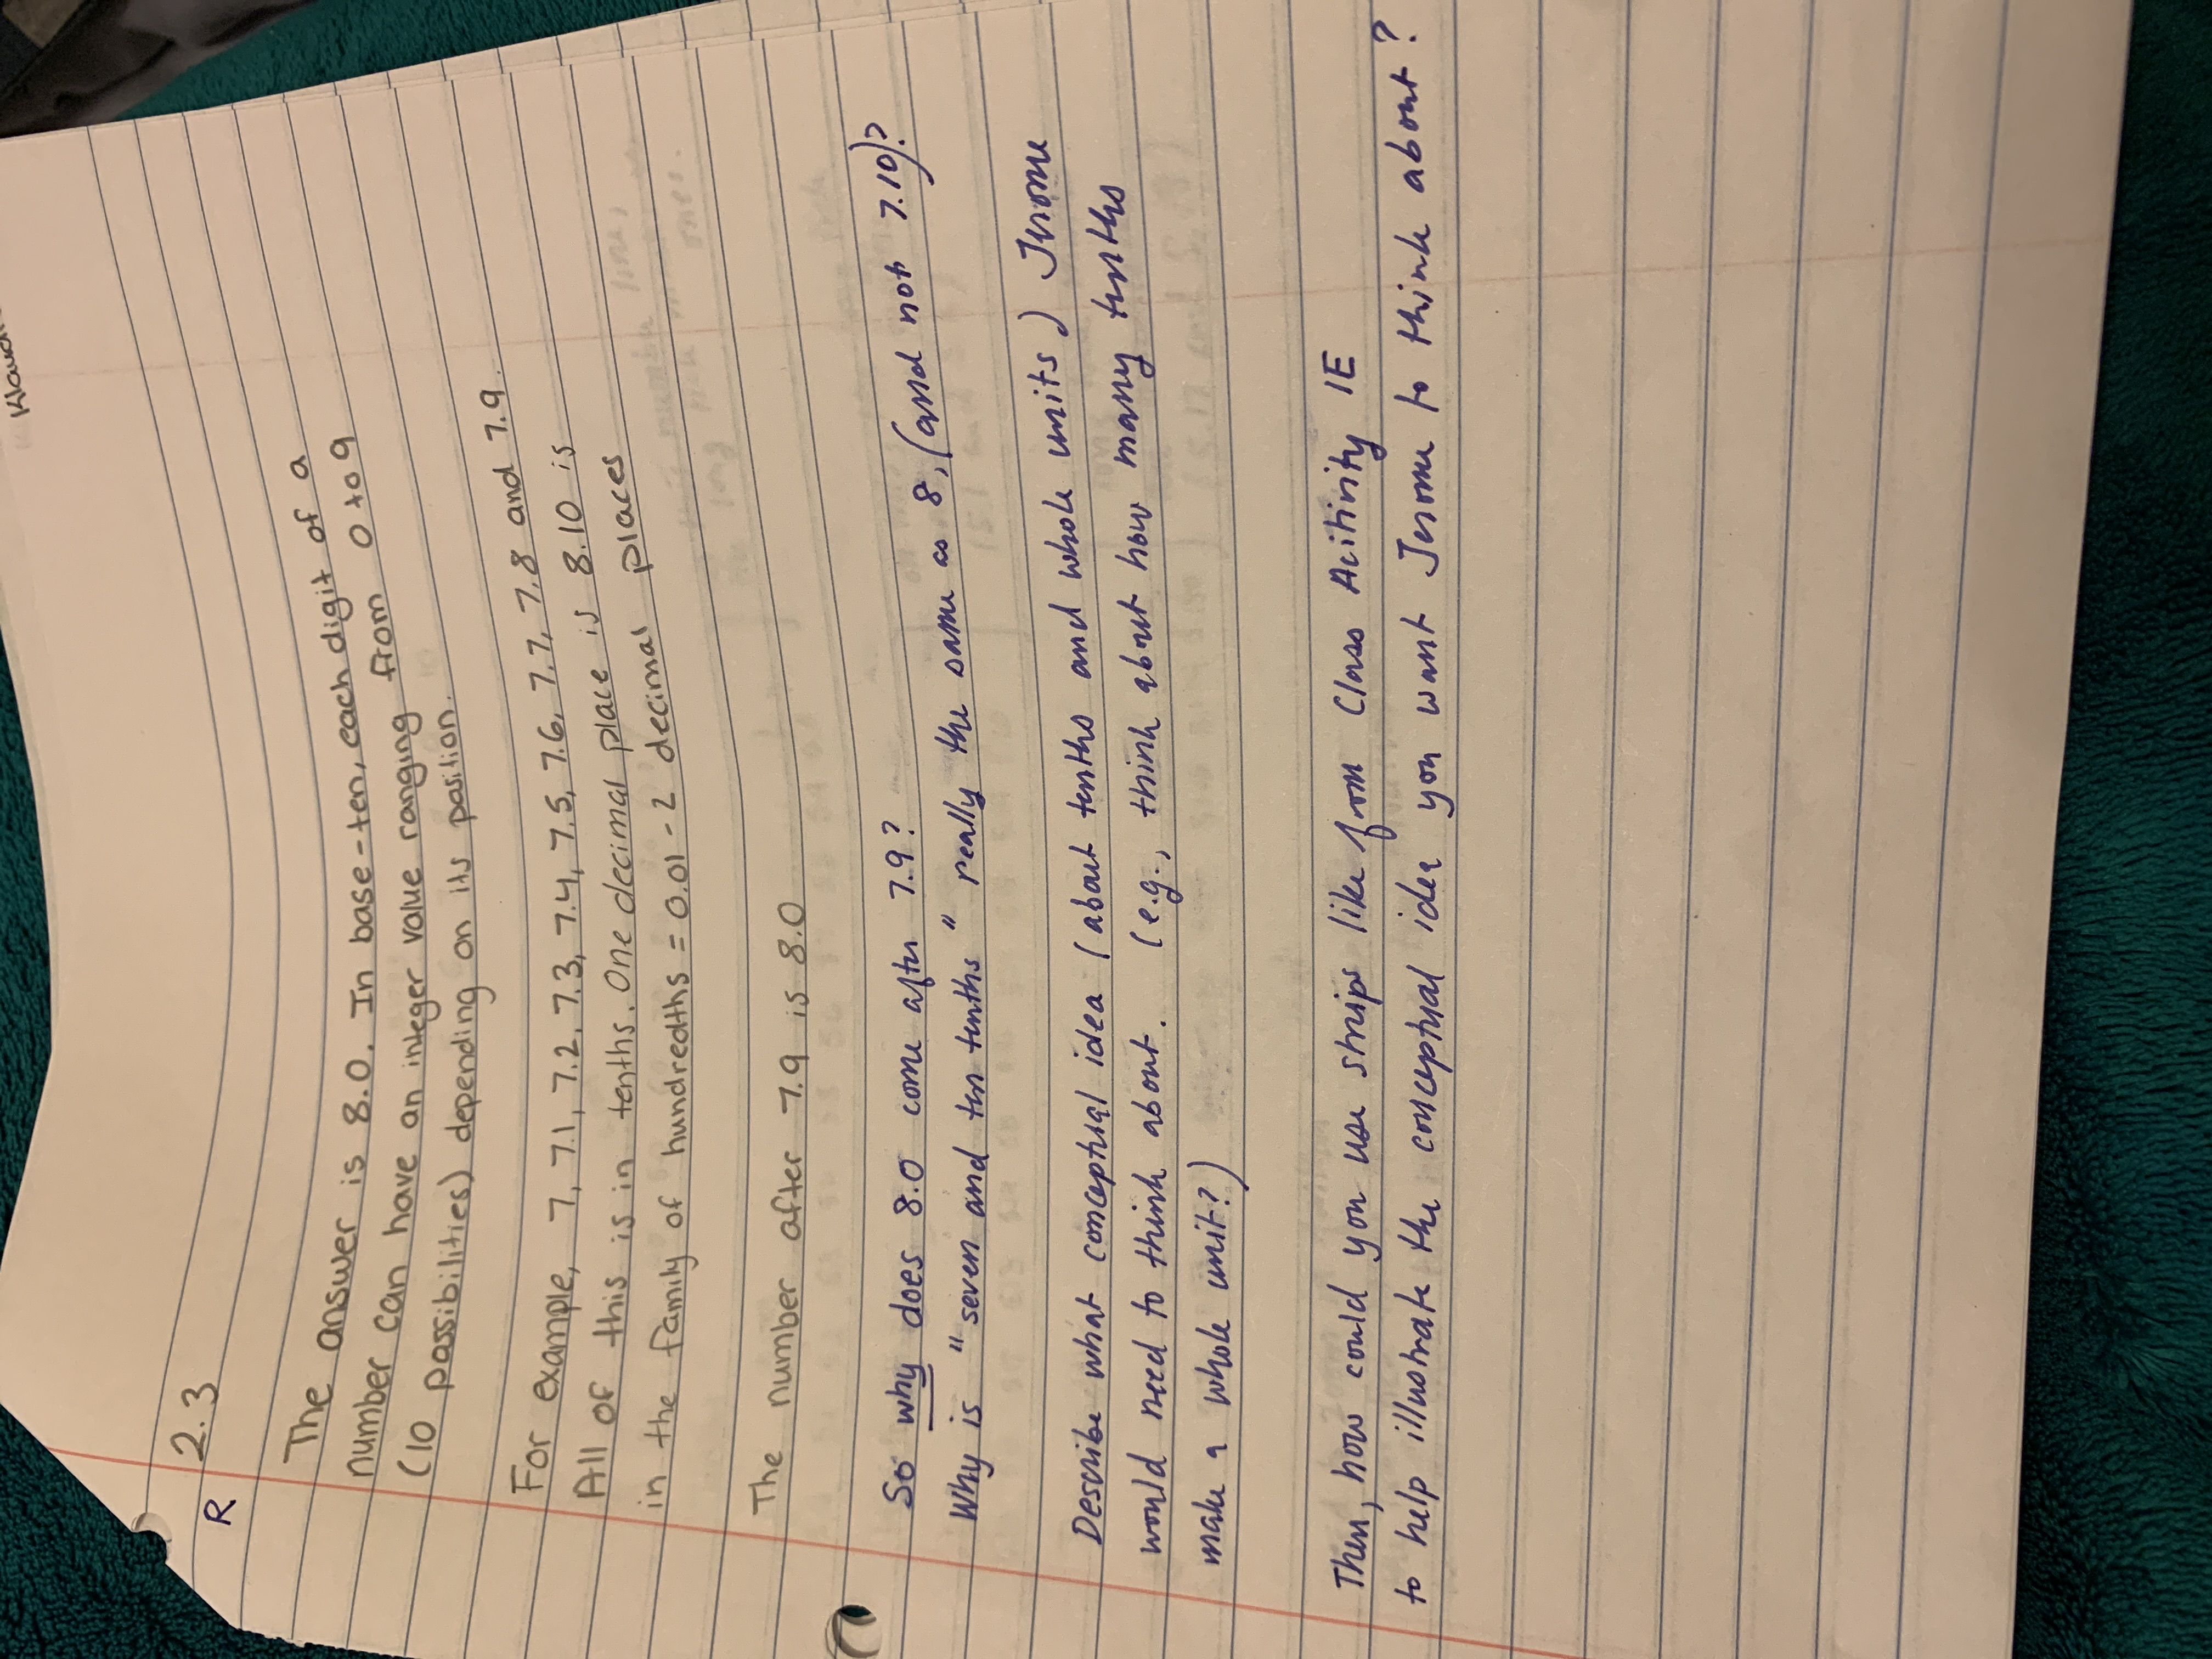 2.3
R
The answer is 8.0. In base-ten, each digit of a
number can have an integer value ranging from 0 to 9
(10 possibilities) depending on its position.
For example, 7, 7.1, 7.2, 7.3, 7.4, 7.5, 7.6, 7.7, 7.8 and 7.9.
All of this is in tenths. One decimal place is 8.10 is
in the family of hundredths = 0.01 - 2 decimal places
The number after 7.9 is 8.0
So why does 8.0 come after 7.9?
Why is "seven and ten tenths" really the same as 8, (and not 7.10)?
Describe what conceptual idea (about tenths and whole units) Jerome
would need to think about. (e.g., think about how many tenths
make a whole unit?)
Then, how could you use strips like from Class Activity 1E
to help illustrate the conceptual idea you want Jerome to think about?